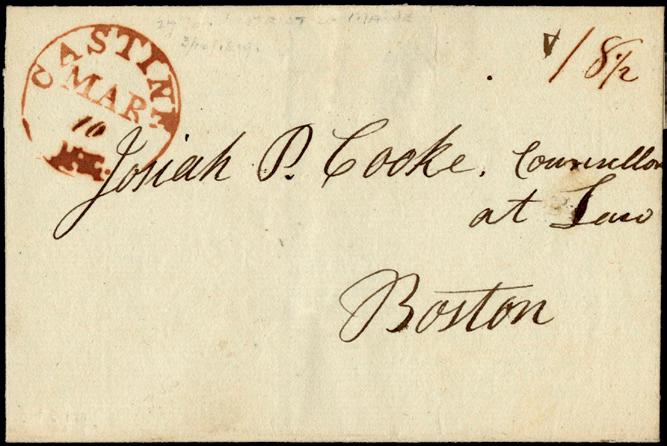 CASTINE
MAR
10
18 1/2
Josiah P. Cooke. Counsellor
at Law
Boston